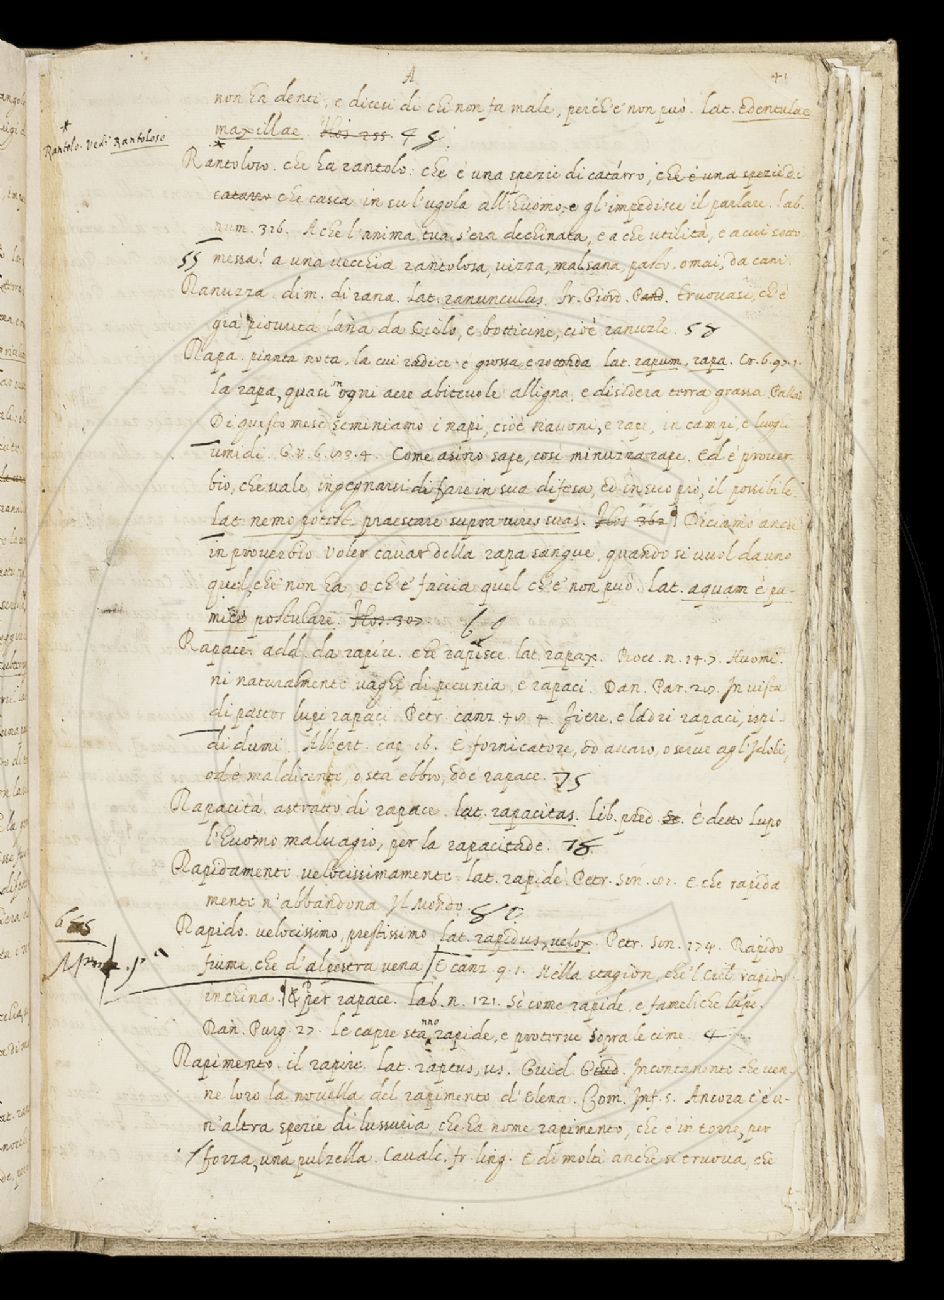 A 41
non ha denti, e dicesi di chi non fa male, perch'e' non può. Lat. edentulae
maxillae. Flos. 255. 45.
* Rantolo. Vedi Rantoloso
* Rantoloso. che ha rantolo: che è una spezie di catarro, che è una spezie di
catarro che casca in su l'ugola all'huomo, e gl'impedisce il parlare. Lab.
num. 316. A che l'anima tua s'era dechinata, e a che utilità, e a cui sotto
55 messa! a una vecchia rantolosa, vizza, malsana, pasto omai da cani.
Ranuzza. dim. di rana. Lat. ranunculus. Fr. Giord. Pred. truovasi, ch'è
già piovuta lana da Cielo, e botticine, cioè ranuzze. 58
Rapa. pianta nota, la cui radice è grossa, e ritonda lat. rapum, rapa. Cr. 6. 97. 1.
la rapa, quasi in ogni aere abitevole alligna, e disidera terra grassa. Pallad.
Di questo mese seminiamo i napi, cioè navoni, e rape, in campi, e luoghi
umidi. G. V. 6. 3. 4. Come asino sape, così minuzza rape. Ed è prover-
bio, che vale, ingegnarsi di fare in sua difesa, ed in suo prò, il possibile.
Lat. nemo potest praestare supra vires suas. Flos 362. Diciamo anche
in proverbio. Voler cavar della rapa sangue, quando si vuol da uno
quel, che non ha, o ch'e' faccia quel ch'e' non può. Lat. aquam è pu-
mice postulare. Flos. 307. 69
Rapace. add. da rapire. che rapisce. lat. rapax. Bocc. n. 24. 7. Huomi-
ni naturalmente vaghi di pecunia, e rapaci. Dan. Par. 27. In vista
di pastor lupi rapaci. Petr. canz. 4. Fiere, e ladri rapaci, ispi-
di dumi. Albert. cap. 16. È fornicatore, od avaro, o serve agl'Idoli,
od è maldicente, o sta ebbro, od è rapace. 75
Rapacità. astratto di rapace. lat. rapacitas. Lib. pred. È detto Lupo
l'huomo malvagio, per la rapacitade. 78
Rapidamente. velocissimamente. lat. rapidè. Petr. Son. E che rapida
mente n'abbandona Il Mondo. 80
Rapido. velocissimo, prestissimo lat. rapidus, velox. Petr. Son. 174. Rapido
fiume, che d'alpestra vena E canz. 9. 1. Nella stagion, che'l Ciel rapido
inchina. § per rapace. Lab. n. 121. Sì come rapide, e fameliche lupe.
Dan. Purg. 27. Le capre stanno rapide, e proterve sopra le cime. 4
Rapimento. il rapire. Lat. raptus, us. Guid. Giud. Incontanente che ven-
ne loro la novella del rapimento d'Elena. Com. Inf. 5. Ancora c'è u-
n'altra spezie di lussuria, che ha nome rapimento, che è in torre, per
forza, una pulzella. Cavalc. fr. ling. E di molti anche si truova, che